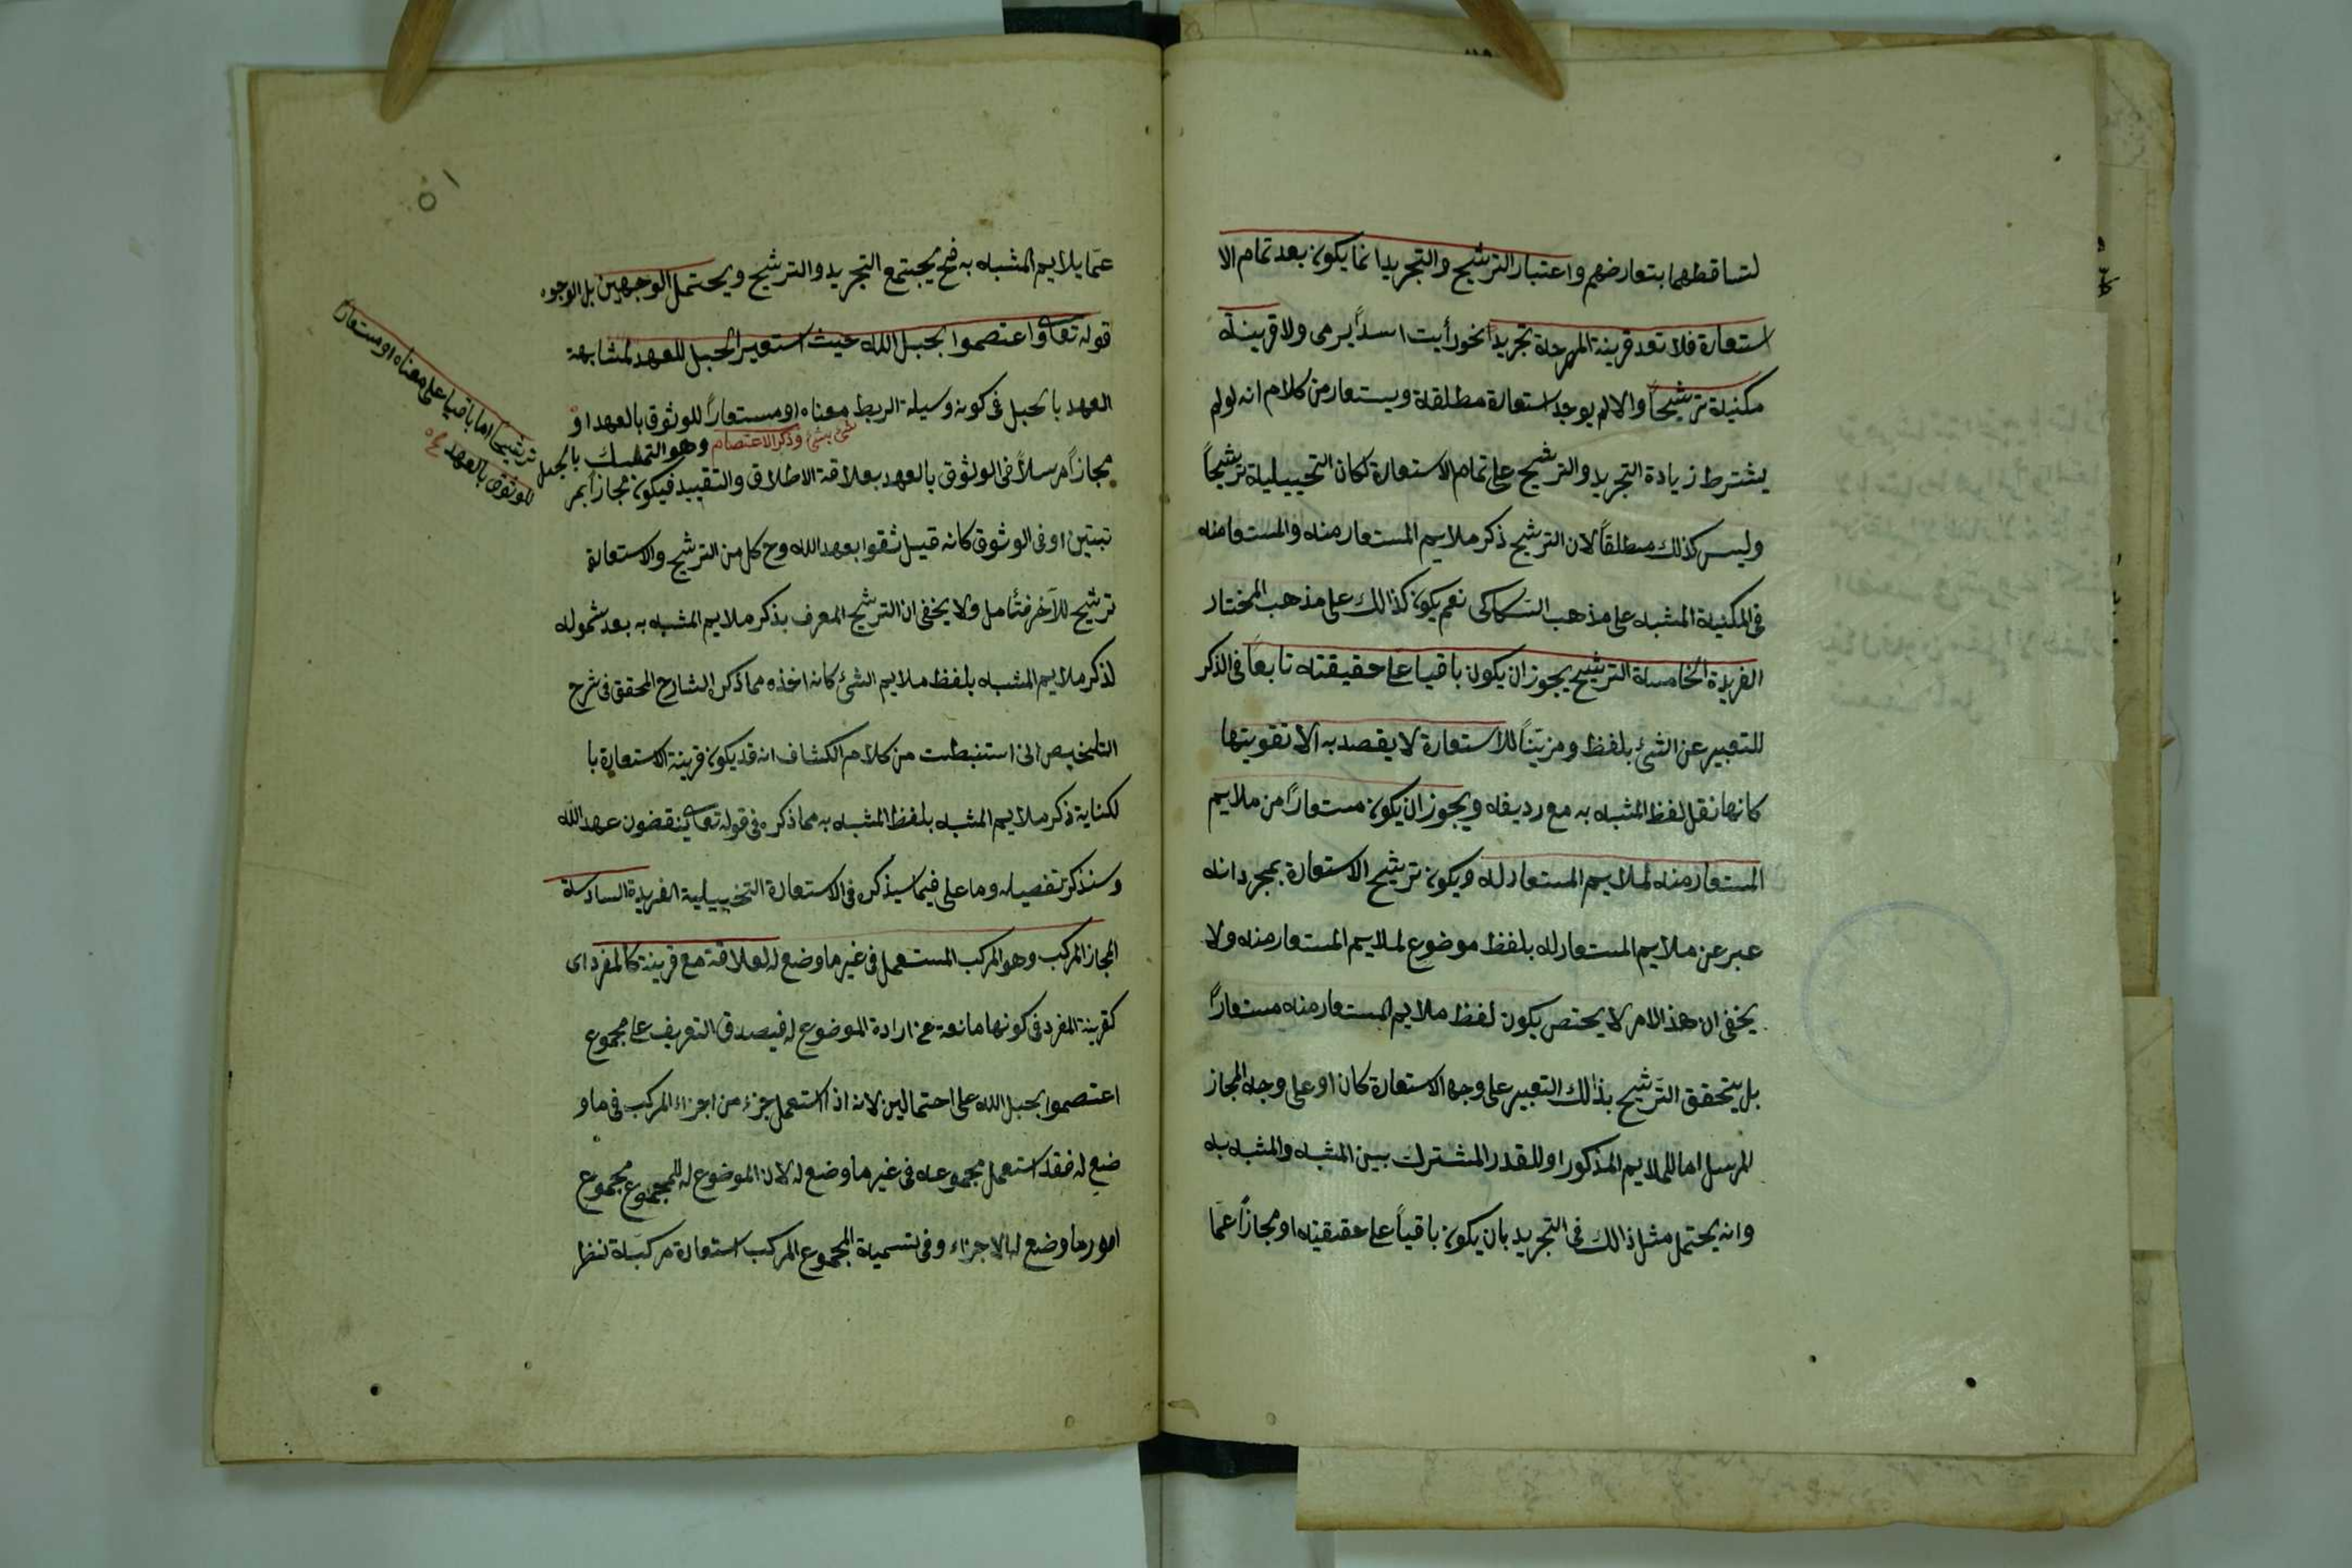 لتساقطهما بتعارضهم واعتبار الترشيح والتجريد انما يكون بعد تمام الا
ستعارة فلا تعد قرينة المصرحة تجريدا نحو رأيت اسداً يرمى ولا قرينة
مكنية ترشيحاً والا لم يوجد استعارة مطلقة ويستعار من كلام انه لو لم
يشترط زيادة التجريد والترشيح على تمام الاستعارة لكان التخييلية ترشيحاً
وليس كذلك مطلقاً لان الترشيح ذكر ملايم المستعار منه والمستعا منه
فى المكنية المشبه على مذهب السكاكى نعم يكون كذالك على مذهب المختار
الفريدة الخامسة الترشيح يجوز ان يكون باقيا على حقيقته تابعاً فى الذكر
للتعبير عن الشئ بلفظ ومزيناً للاستعارة لا يقصد به الا تقويتها
كانها نقل لفظ المشبه به مع رديفه ويجوز ان يكون مستعاراً من ملايم
المستعار منه لملايم المستعار له ويكون ترشيح الاستعارة بمجرد انه
عبر عن ملايم المستعار له بلفظ موضوع لملايم المستعار منه ولا
يخفى ان هذ الامر لا يختص بكون لفظ ملايم المستعار منه مستعاراً
بل يتحقق الترشيح بذالك التعبير على وجه الاستعارة كان او على وجه المجاز
المرسل اما للملايم المذكور او للقدر المشترك بين المشبه والمشبه به
وانه يحتمل مثل ذالك فى التجريد بان يكون باقياً على حقيقته او مجازاً عمّا
٥١
عمّا يلايم المشبه به فح يجتمع التجريد والترشيح ويحتمل الوجهين بل الوجوه
قوله تعا واعتصموا بحبل الله حيث استعير الحبل للعهد لمشابهة
العهد بالحبل فى كونه وسيلة الربط معناه او مستعاراً للوثوق بالعهد او
شئ بشئ وذكر الاعتصام وهو التمسك بالحبل ترشيحا اما باقيا على معناه او مستعارا
للوثوق بالعهد
مجازاً مرسلاً فى الوثوق بالعهد بعلاقة الاطلاق والتقييد فيكون مجازاً بمر
تبتين او فى الوثوق كانه قيل ثقوا بعهد الله وح كل من الترشيح والاستعارة
ترشيح للآخر فتأمل ولا يخفى ان الترشيح المعرف بذكر ملايم المشبه به بعد شموله
لذكر ملايم المشبه بلفظ ملايم الشئ كانه اخذه مما ذكره الشارح المحقق فى شرح
التلخيص انى استنبطت من كلام الكشاف انه قد يكون قرينة الاستعارة با
لكناية ذكر ملايم المشبه بلفظ المشبه به مما ذكره فى قوله تعا ينقضون عهد الله
وسنذكر تفصيله وما على فيما سيذكره فى الاستعارة التخييلية الفريدة السادسة
المجاز المركب وهو المركب المستعمل فى غير ما وضع له لعلاقة مع قرينة كالمفرد اى
كقرينة المفرد فى كونها مانعة عن ارادة الموضوع له فيصدق التعريف على مجموع
اعتصموا بحبل الله على احتمالين لانه اذا استعمل جزء من اجزاء المركب فى ما و
ضع له فقد استعمل مجموعه فى غير ما وضع له لان الموضوع له للمجموع مجموع
امور ما وضع لها الاجزاء وفى تسمية المجموع المركب استعارة مركبة نظرا